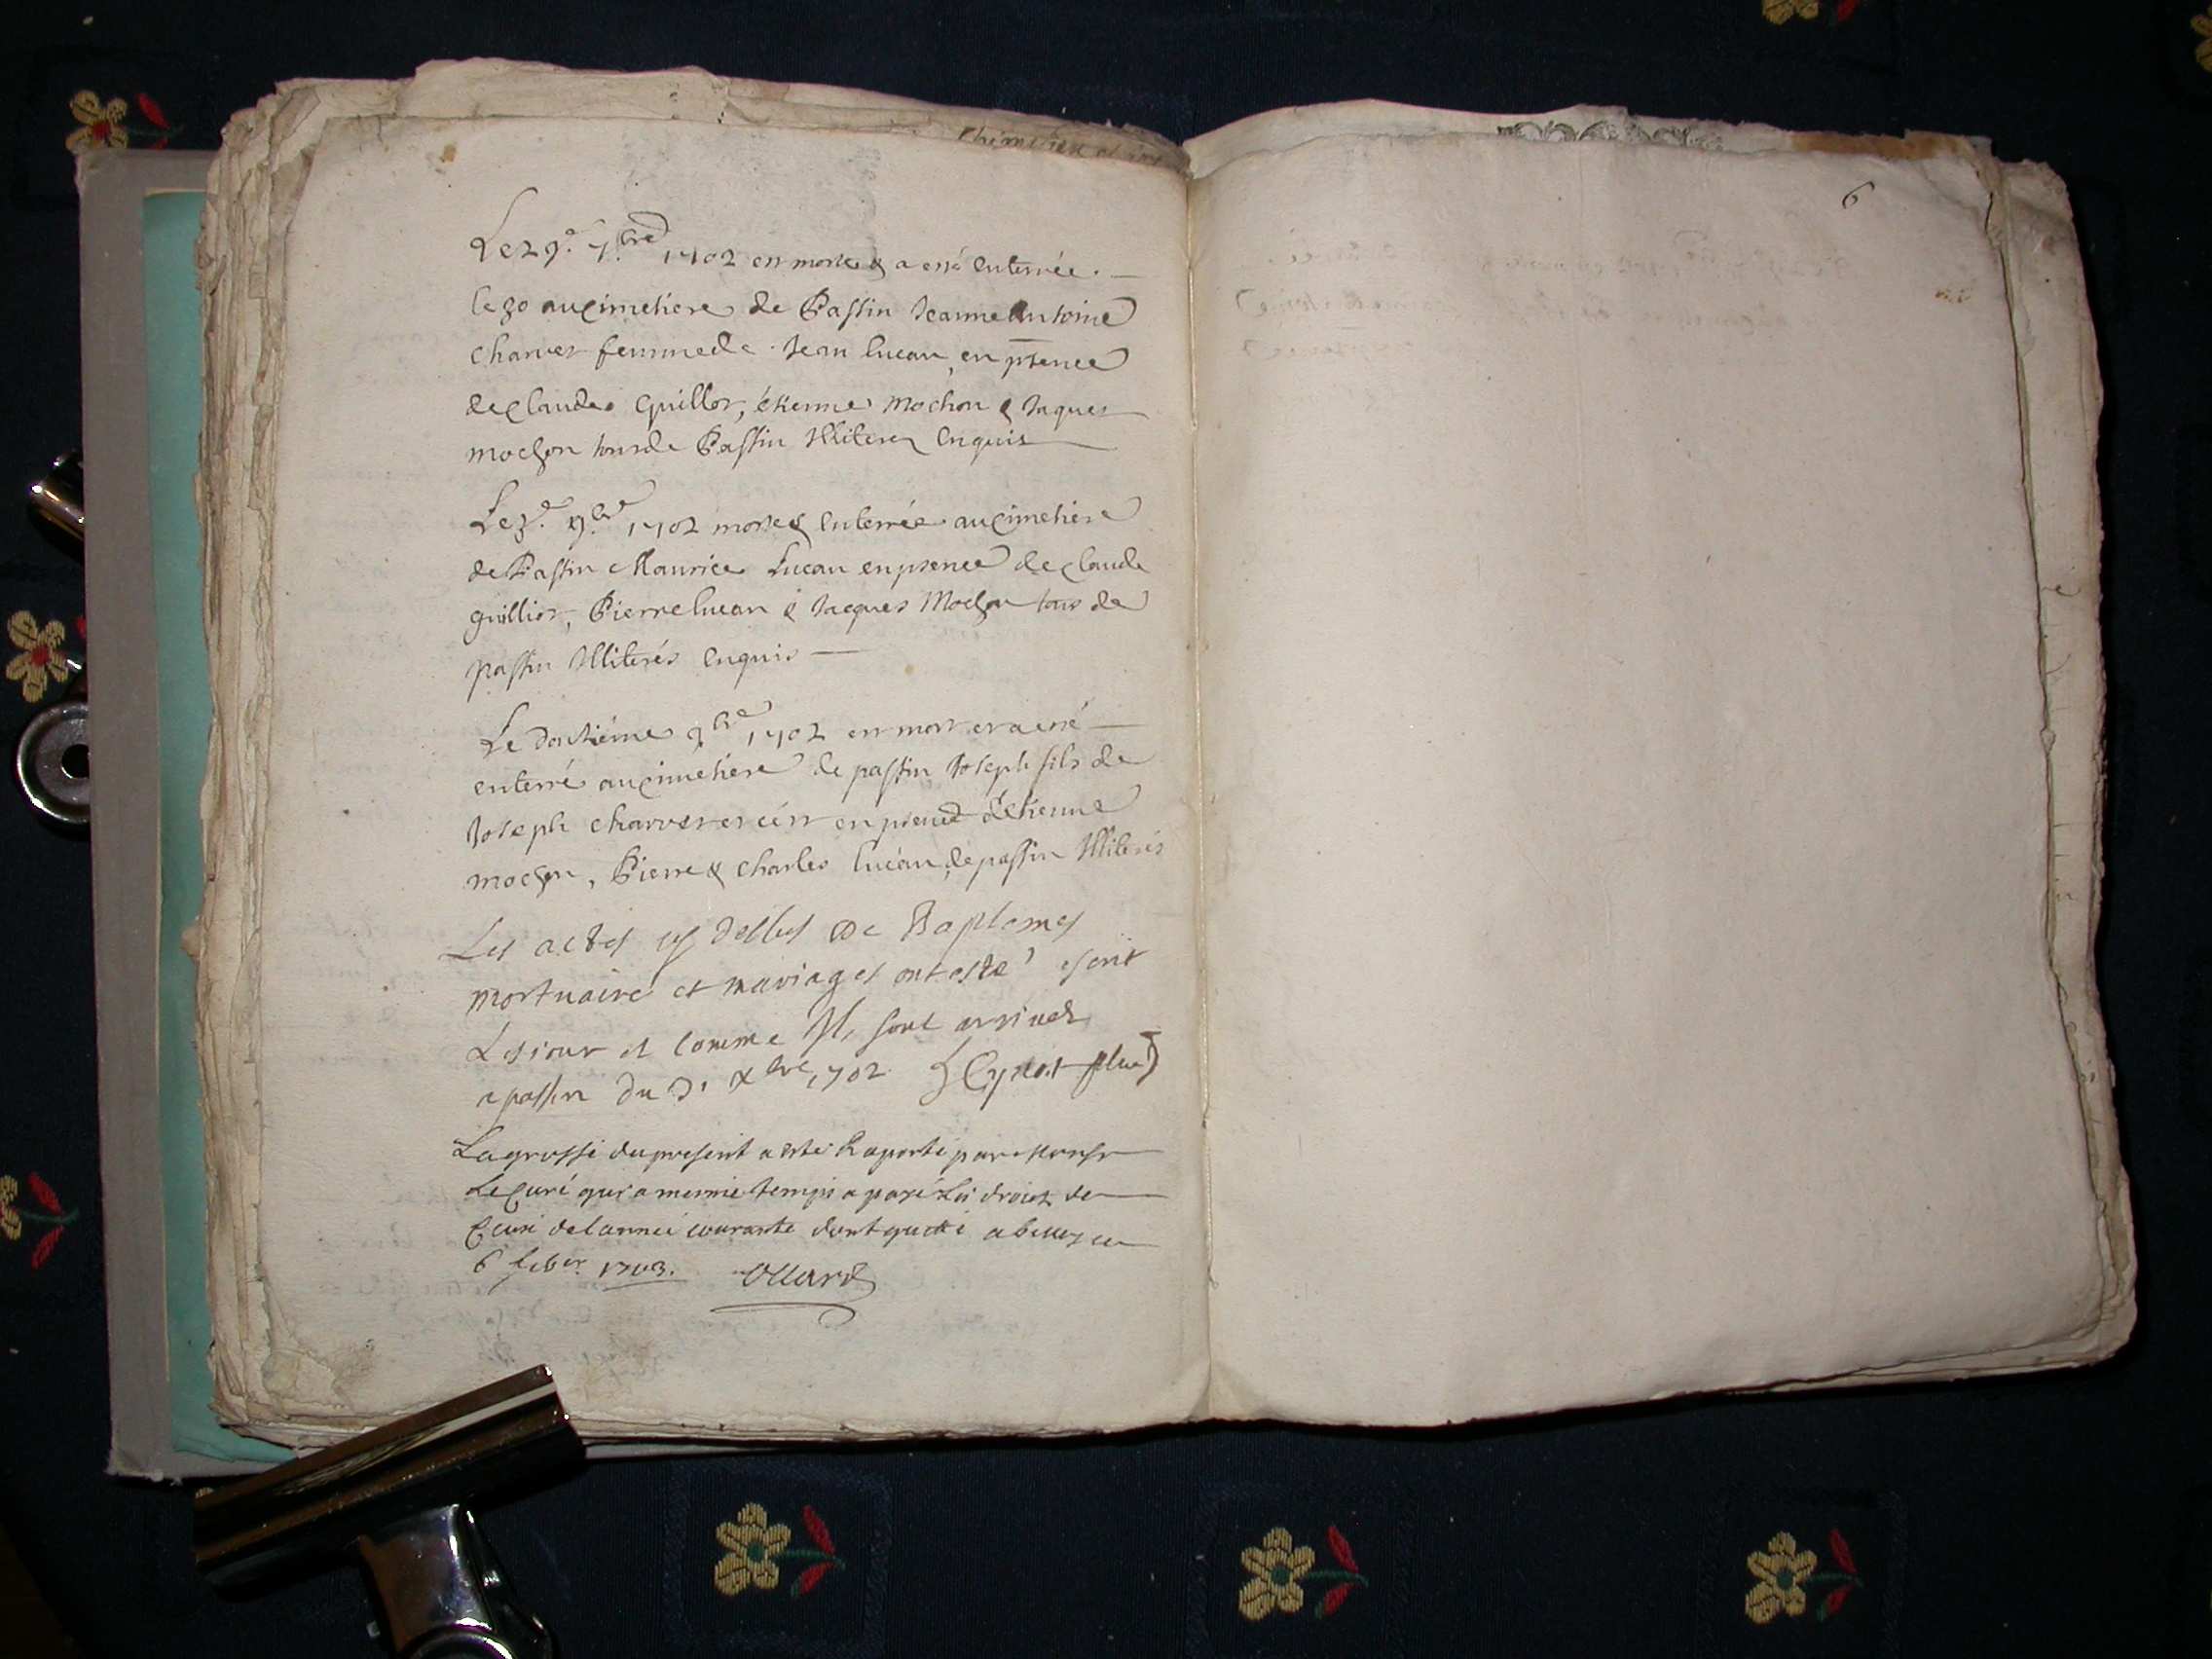 6
Le 29.e 7.bre 1702 est morte & a esté enterrée
le 30 au cimetiere de Passin Jeanne Antoine
Charvet femme de Jean lucan, en pñence
de Claude Guillot, étienne mochon & Jaques
mochon tous de Passin Illiterez enquis
Le 3.e 9.bre 1702 morte & enterrée au cimetiere
de Passin Maurice Lucan en pnence de Claude
guilliot, Pierre lucan & Jacques Mochon tous de
passin Illiterés enquis
Le 9bre 1702 est mort et a esté
enterré au cimetiere de passin Joseph fils de
Joseph charvet en pnence d'étienne
mochon, Pierre & Charles lucan, de passin Illiterés
Les actes cy dessus de Baptemes
mortuaire et mariages ont esté escrit
Le jour et comme Ils sont arrivez
a passin du 31 Xbre 1702
La grosse du present a esté Raporté par monsr
Le Curé qui a mesme temps a payé Les droict de
de lannée courante dont quitte a belley ce
6 febvr. 1703. Ollard